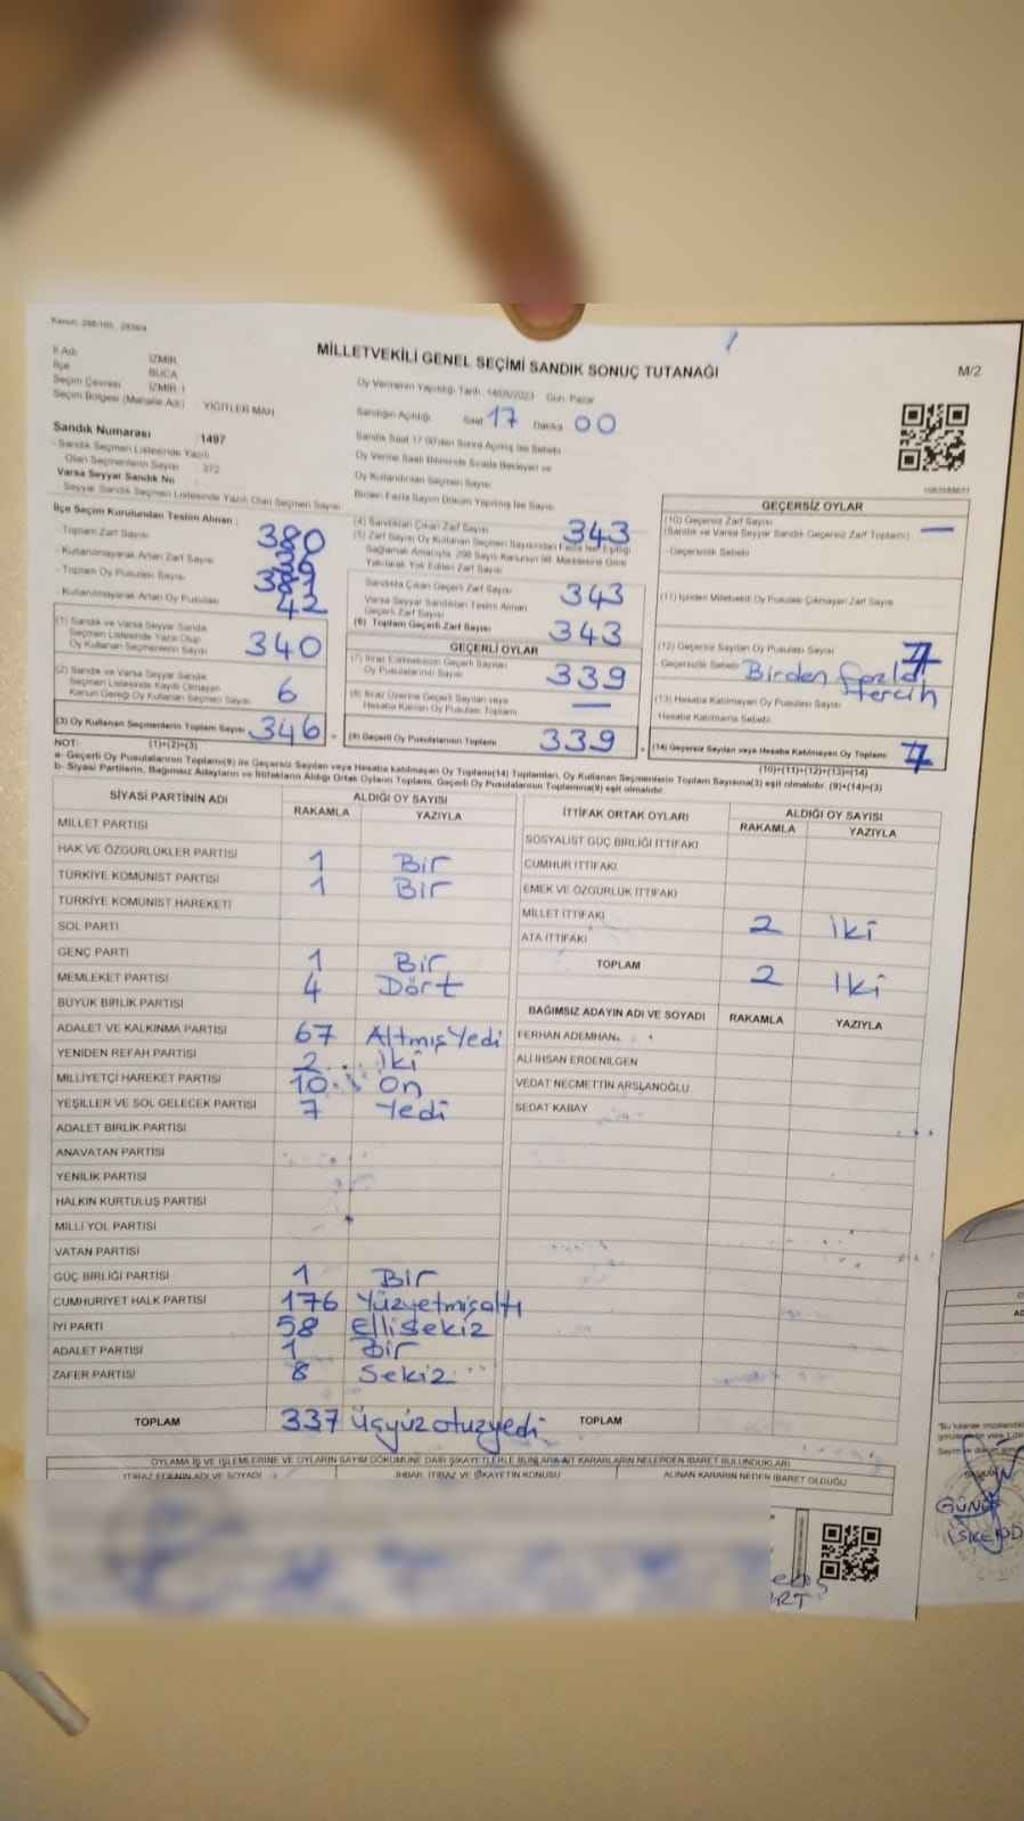 MİLLETVEKİLİ GENEL SEÇİMİ SANDIK SONUÇ TUTANAĞI
M/2
İl Adı İZMİR
İlçe BUCA
Seçim Çevresi İZMİR 1
Seçim Bölgesi (Mahalle Adı) YİĞİTLER MAH
Sandık Numarası 1497
Sandık Seçmen Listesinde Yazılı
Olan Seçmenlerin Sayısı 372
Varsa Seyyar Sandık No
Seyyar Sandık Seçmen Listesinde Yazılı Olan Seçmen Sayısı
Oy Vermenin Yapıldığı Tarih 14/05/2023 Gün Pazar
Sandığın Açıldığı Saat 17 Dakika 00
Sandık Saat 17.00'den Sonra Açılmış İse Sebebi
Oy Kullandırılan Seçmen Sayısı
Birden Fazla Sayım Döküm Yapılmış İse Sayısı
İlçe Seçim Kurulundan Teslim Alınan :
- Toplam Zarf Sayısı 380
- Kullanılmayarak Artan Zarf Sayısı
- Toplam Oy Pusulası Sayısı
- Kullanılmayarak Artan Oy Pusulası 42
(1) Sandık ve Varsa Seyyar Sandık
Seçmen Listesinde Yazılı Olup
Oy Kullanan Seçmenlerin Sayısı 340
(2) Sandık ve Varsa Seyyar Sandık
Seçmen Listesinde Kayıtlı Olmayan
Kanun Gereği Oy Kullanan Seçmen Sayısı 6
(3) Oy Kullanan Seçmenlerin Toplam Sayısı 346
(1)+(2)=(3)
(4) Sandıktan Çıkan Zarf Sayısı 343
Sandıkta Çıkan Geçerli Zarf Sayısı 343
Varsa Seyyar Sandıktan Teslim Alınan
Geçerli Zarf Sayısı
(6) Toplam Geçerli Zarf Sayısı 343
GEÇERLİ OYLAR
(7) İtiraz Edilmeksizin Geçerli Sayılan
Oy Pusulalarının Sayısı 339
(8) İtiraz Üzerine Geçerli Sayılan veya
Hesaba Katılan Oy Pusulası Toplamı —
(9) Geçerli Oy Pusulalarının Toplamı 339
GEÇERSİZ OYLAR
(10) Geçersiz Zarf Sayısı —
(Sandık ve Varsa Seyyar Sandık Geçersiz Zarf Toplamı)
- Geçersizlik Sebebi
(11) İçinden Milletvekili Oy Pusulası Çıkmayan Zarf Sayısı
(12) Geçersiz Sayılan Oy Pusulası Sayısı 7
- Geçersizlik Sebebi Birden fazla
tercih
(13) Hesaba Katılmayan Oy Pusulası Sayısı
Hesaba Katılmama Sebebi
(14) Geçersiz Sayılan veya Hesaba Katılmayan Oy Toplamı 7
(10)+(11)+(12)+(13)=(14)
NOT:
a- Geçerli Oy Pusulalarının Toplamı(9) ile Geçersiz Sayılan veya Hesaba katılmayan Oy Toplamı(14) Toplamları, Oy Kullanan Seçmenlerin Toplam Sayısına(3) eşit olmalıdır. (9)+(14)=(3)
b- Siyasi Partilerin, Bağımsız Adayların ve İttifakların Aldığı Ortak Oyların Toplamı, Geçerli Oy Pusulalarının Toplamına(9) eşit olmalıdır.
SİYASİ PARTİNİN ADI ALDIĞI OY SAYISI
RAKAMLA YAZIYLA
MİLLET PARTİSİ
HAK VE ÖZGÜRLÜKLER PARTİSİ 1 Bir
TÜRKİYE KOMÜNİST PARTİSİ 1 Bir
TÜRKİYE KOMÜNİST HAREKETİ
SOL PARTİ
GENÇ PARTİ 1 Bir
MEMLEKET PARTİSİ 4 Dört
BÜYÜK BİRLİK PARTİSİ
ADALET VE KALKINMA PARTİSİ 67 Altmış Yedi
YENİDEN REFAH PARTİSİ 2 iki
MİLLİYETÇİ HAREKET PARTİSİ 10 On
YEŞİLLER VE SOL GELECEK PARTİSİ 7 Yedi
ADALET BİRLİK PARTİSİ
ANAVATAN PARTİSİ
YENİLİK PARTİSİ
HALKIN KURTULUŞ PARTİSİ
MİLLİ YOL PARTİSİ
VATAN PARTİSİ
GÜÇ BİRLİĞİ PARTİSİ 1 Bir
CUMHURİYET HALK PARTİSİ 176 Yüzyetmişaltı
İYİ PARTİ 58 Ellisekiz
ADALET PARTİSİ 1 Bir
ZAFER PARTİSİ 8 Sekiz
TOPLAM 337 üçyüzotuzyedi
İTTİFAK ORTAK OYLARI ALDIĞI OY SAYISI
RAKAMLA YAZIYLA
SOSYALİST GÜÇ BİRLİĞİ İTTİFAKI
CUMHUR İTTİFAKI
EMEK VE ÖZGÜRLÜK İTTİFAKI
MİLLET İTTİFAKI 2 iki
ATA İTTİFAKI
TOPLAM 2 iki
BAĞIMSIZ ADAYIN ADI VE SOYADI RAKAMLA YAZIYLA
FERHAN ADEMHAN
ALİ İHSAN ERDENİLGEN
VEDAT NECMETTİN ARSLANOĞLU
SEDAT KABAY
TOPLAM
OYLAMA İŞ VE İŞLEMLERİNE VE OYLARIN SAYIM DÖKÜMÜNE DAİR ŞİKAYETLERLE BUNLARA AİT KARARLARIN NELERDEN İBARET BULUNDUKLARI
İTİRAZ EDENİN ADI VE SOYADI İHBAR, İTİRAZ VE ŞİKAYETİN KONUSU ALINAN KARARIN NEDEN İBARET OLDUĞU